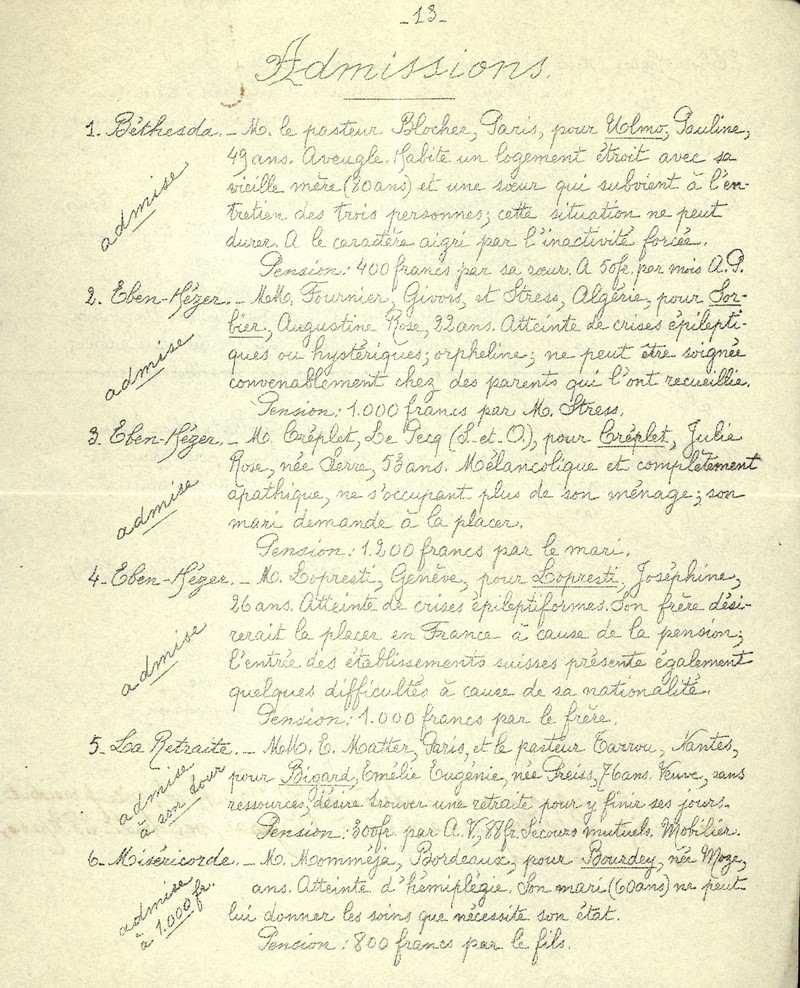 - 13 -
Admissions.
1. Béthesda. - M. le pasteur Blocher, Paris, pour Ulmo, Pauline,
49 ans. Aveugle. Habite un logement étroit avec sa
vieille mère (80 ans) et une sœur qui subvient à l'en-
tretien des trois personnes; cette situation ne peut
durer. A le caractère aigri par l'inactivité forcée.
Pension: 400 francs par sa sœur. A 50 fr. par mois A.P.
admise
2. Eben-Hézer. - MM. Fournier, Givors, et Stress, Algérie, pour Sor-
bier, Augustine Rose, 22 ans. Atteinte de crises épilepti-
ques ou hystériques; orpheline; ne peut être soignée
convenablement chez des parents qui l'ont recueillie.
Pension: 1.000 francs par M. Stress.
admise
3. Eben-Hézer. - M. Créplet, Le Pecq (S.-et-O.), pour Créplet, Julie
Rose, née Serre, 53 ans. Mélancolique et complètement
apathique, ne s'occupant plus de son ménage; son
mari demande à la placer.
Pension: 1.200 francs par le mari.
admise
4. Eben-Hézer. - M. Lopresti, Genève, pour Lopresti, Joséphine,
26 ans. Atteinte de crises épileptiformes. Son frère dési-
rerait la placer en France à cause de la pension;
l'entrée des établissements suisses présente également
quelques difficultés à cause de sa nationalité.
Pension: 1.000 francs par le frère.
admise
5. La Retraite. - MM. E. Matter, Paris, et le pasteur Tarrou, Nantes,
pour Bigard, Emélie Eugénie, née Preiss, 76 ans. Veuve, sans
ressources, désire trouver une retraite pour y finir ses jours.
Pension: 300 fr. par A.V., 88 fr. Secours mutuels. Mobilier.
admise
à son tour
6. Miséricorde. - M. Momméja, Bordeaux, pour Bourdey, née Moze,
ans. Atteinte d'hémiplégie. Son mari (60 ans) ne peut
lui donner les soins que nécessite son état.
Pension: 800 francs par le fils.
admise
à 1.000 fr.